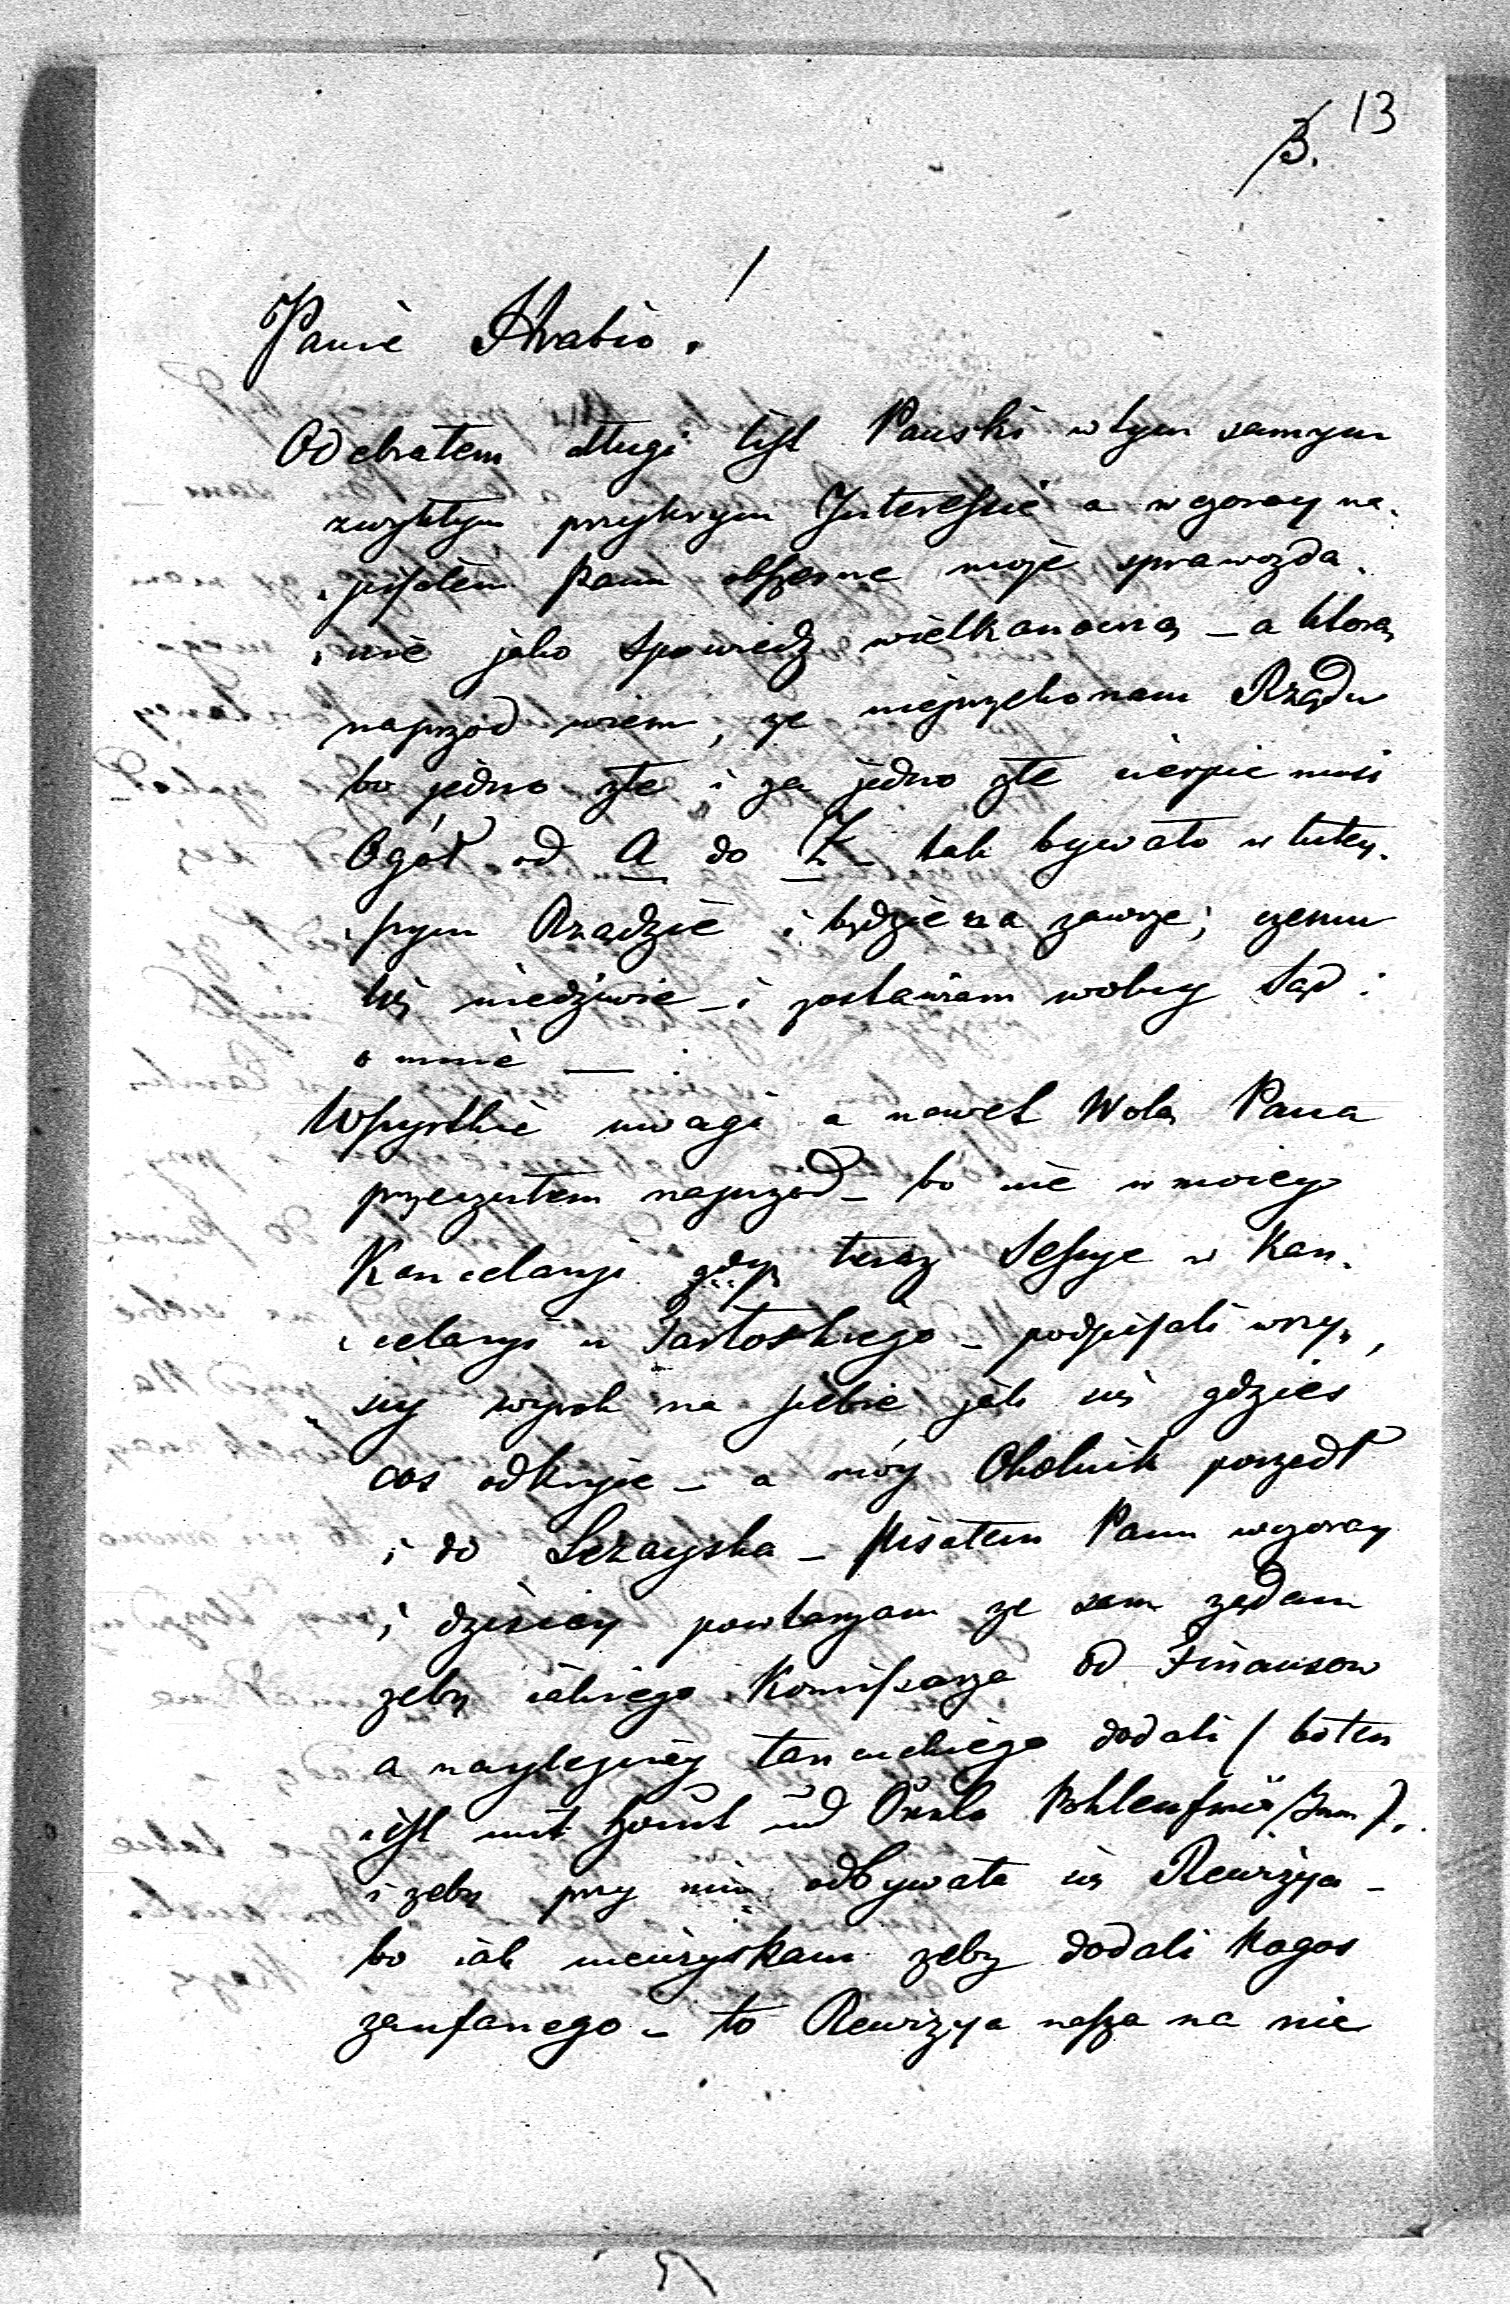 13
3.
Panie Hrabio!
Odebrałem długi list Pański w tym samym
zwykłym przykrym Interessie a wczoray na
pisałem Panu obszerne moje sprawozda
nie jako Spowiedz wielkanocną – a ktorą
naprzod wiem, ze nieprzekonam Rządu
bo jedno złe i za jedno złe cierpic musi
Ogół od A do Z – tak bywało w tutey
szym Rządzie i będzie na zawsze; czemu
się niedziwie – i zostawiam wolny Sąd
o mnie —
Wszystkie uwagi a nawet Wolą Pana
przeczułem naprzod – bo nie w moiey
Kancelaryi gdyz teraz Sessye w Kan
celaryi u – podpisali wszy
scy wyrok na siebie jak się gdzies
cos odkryje – a mój Okolnik poszedł
i do Lezayska – Pisałem Panu wczoray
i dzisiay powtarzam ze sam ządam
zeby iakiego Komissarza od Finansow
a naylepiey Łancuckiego dodali / bo ten
ist mit und
i zeby przy nim odbywała się Rewizya –
bo iak nieuzyskam zeby dodali kogos
zaufanego – to Rewizya nasza na nic